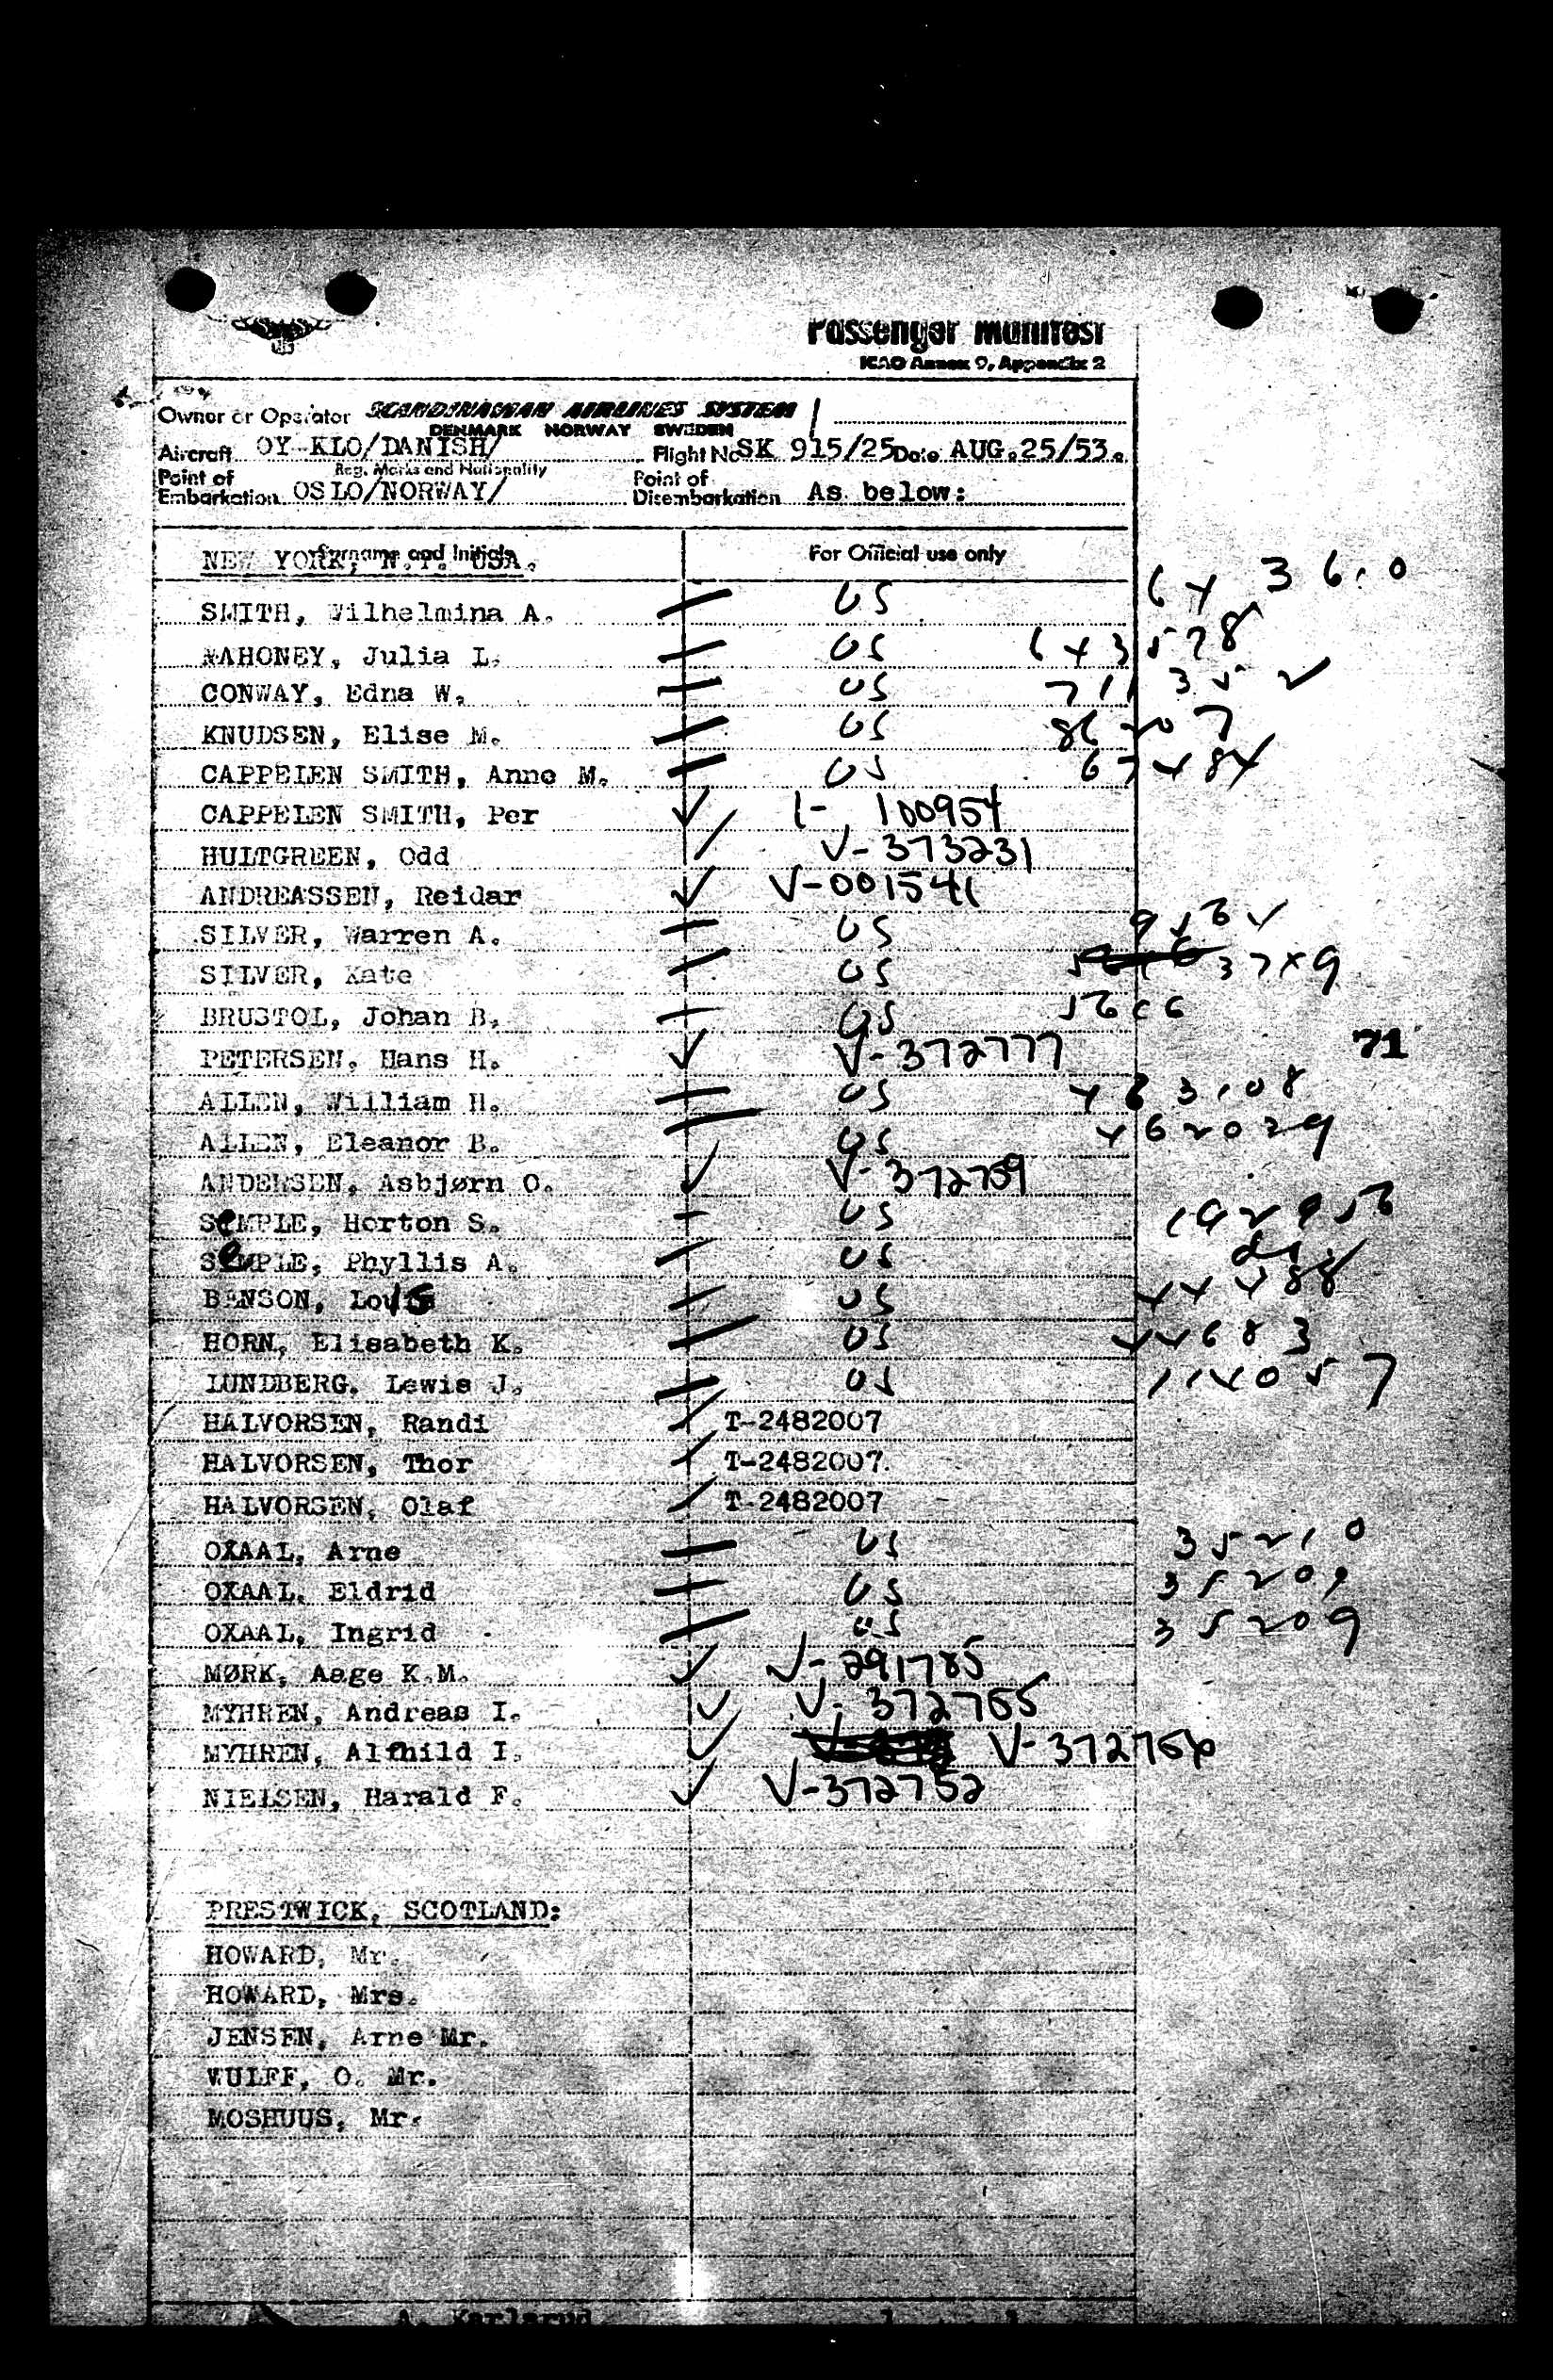 Passenger Manifest
ICAO Annex 9, Appendix 2
Owner or Operator SCANDINAVIAN AIRLINES SYSTEM
DENMARK NORWAY SWEDEN
Aircraft OY-KLO/DANISH/ Flight No SK 915/25 Date AUG.25/53.
Reg. Marks and Nationality
Point of Embarkation OSLO/NORWAY/ Point of Disembarkation As below:
Surname and Initials For Official use only
NEW YORK, N.Y. USA.
SMITH, Wilhelmina A. US
MAHONEY, Julia L. US 643578
CONWAY, Edna W. US
KNUDSEN, Elise M. US
CAPPELEN SMITH, Anne M. US
CAPPELEN SMITH, Per I- 100954
HULTGREEN, Odd V-373231
ANDREASSEN, Reidar V-001541
SILVER, Warren A. US
SILVER, Kate US
BRUSTOL, Johan B. US
PETERSEN, Hans H. V-372777
71
ALLEN, William H. US
ALLEN, Eleanor B. US 462029
ANDERSEN, Asbjørn O. V-372759
SeMPLE, Horton S. US
SeMPLE, Phyllis A. US
BENSON, Louis US
HORN, Elisabeth K. US
LUNDBERG, Lewis J. US 114057
HALVORSEN, Randi T-2482007
HALVORSEN, Thor T-2482007.
HALVORSEN, Olaf T-2482007
OXAAL, Arne US 35210
OXAAL, Eldrid US
OXAAL, Ingrid US 35209
MØRK, Aage K.M. V-291785
MYHREN, Andreas I. V-372755
MYHREN, Alfhild I. V-372756
NIELSEN, Harald F. V-372752
PRESTWICK, SCOTLAND:
HOWARD, Mr.
HOWARD, Mrs.
JENSEN, Arne Mr.
WULFF, O. Mr.
MOSHUUS, Mr.
A. Karlsrud